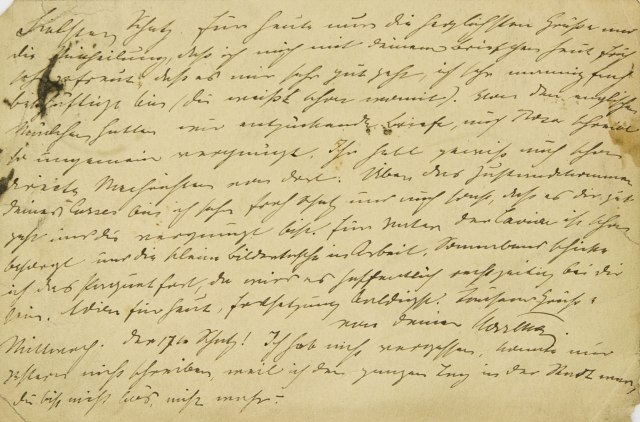 Schatz, für heute nur die herzlichsten Grüße und
die Mittheilung, daß ich mich mit deinem Briefchen heut früh
sehr gefreut, daß es mir sehr gut geht, ich sehr
beschäftigt bin (du weißt schon womit). Von den englischen
Mädchen hatten wir entzückende Briefe, auch Rosa schreibt
so ungemein vergnügt. Ihr habt gewiß auch schon
directe Nachrichten von dort. Über das Zusammenkommen
deines bin ich sehr froh und auch, daß es dir gut
geht und du vergnügt bist. Für Vater der Caviar ist schon
besorgt und die kleine in Arbeit. Sonnabend schicke
ich das Paquet fort, da wird es hoffentlich rechtzeitig bei dir
sein. Adieu für heut, Fortsetzung baldigst! Tausend Grüße
von deiner
Mittwoch. der 17te Schatz! Ich hab nicht vergessen, konnte nur
gestern nicht schreiben, weil ich den ganzen Tag in der Stadt war,
du bist nicht bös, nicht wahr?